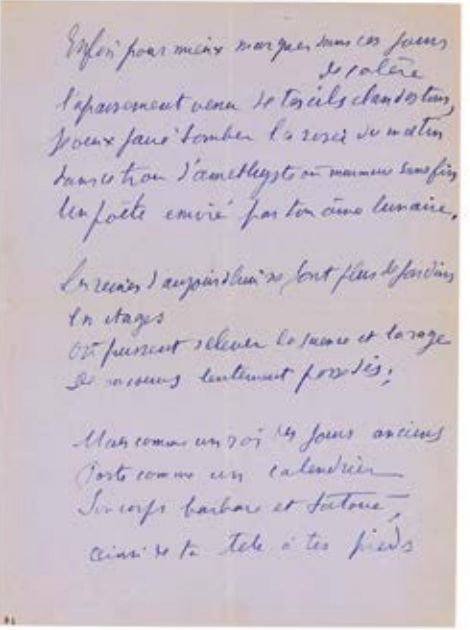 Enfin pour mieux marquer sous ces jours
de colère
l'apaisement venu de tes cils clandestins,
Je veux faire tomber la rosée du matin
dans ce trou d'améthyste où murmure sans fin
Un poète enivré par ton âme lunaire.
Les reines d'aujourd'hui ne font plus de jardins
En étages
Où puissent relever la science et la rage
De lentement possédés;
Mais comme un roi des jours anciens
Porte comme un calendrier
Son corps barbare et tatoué,
ainsi de ta tete à tes pieds